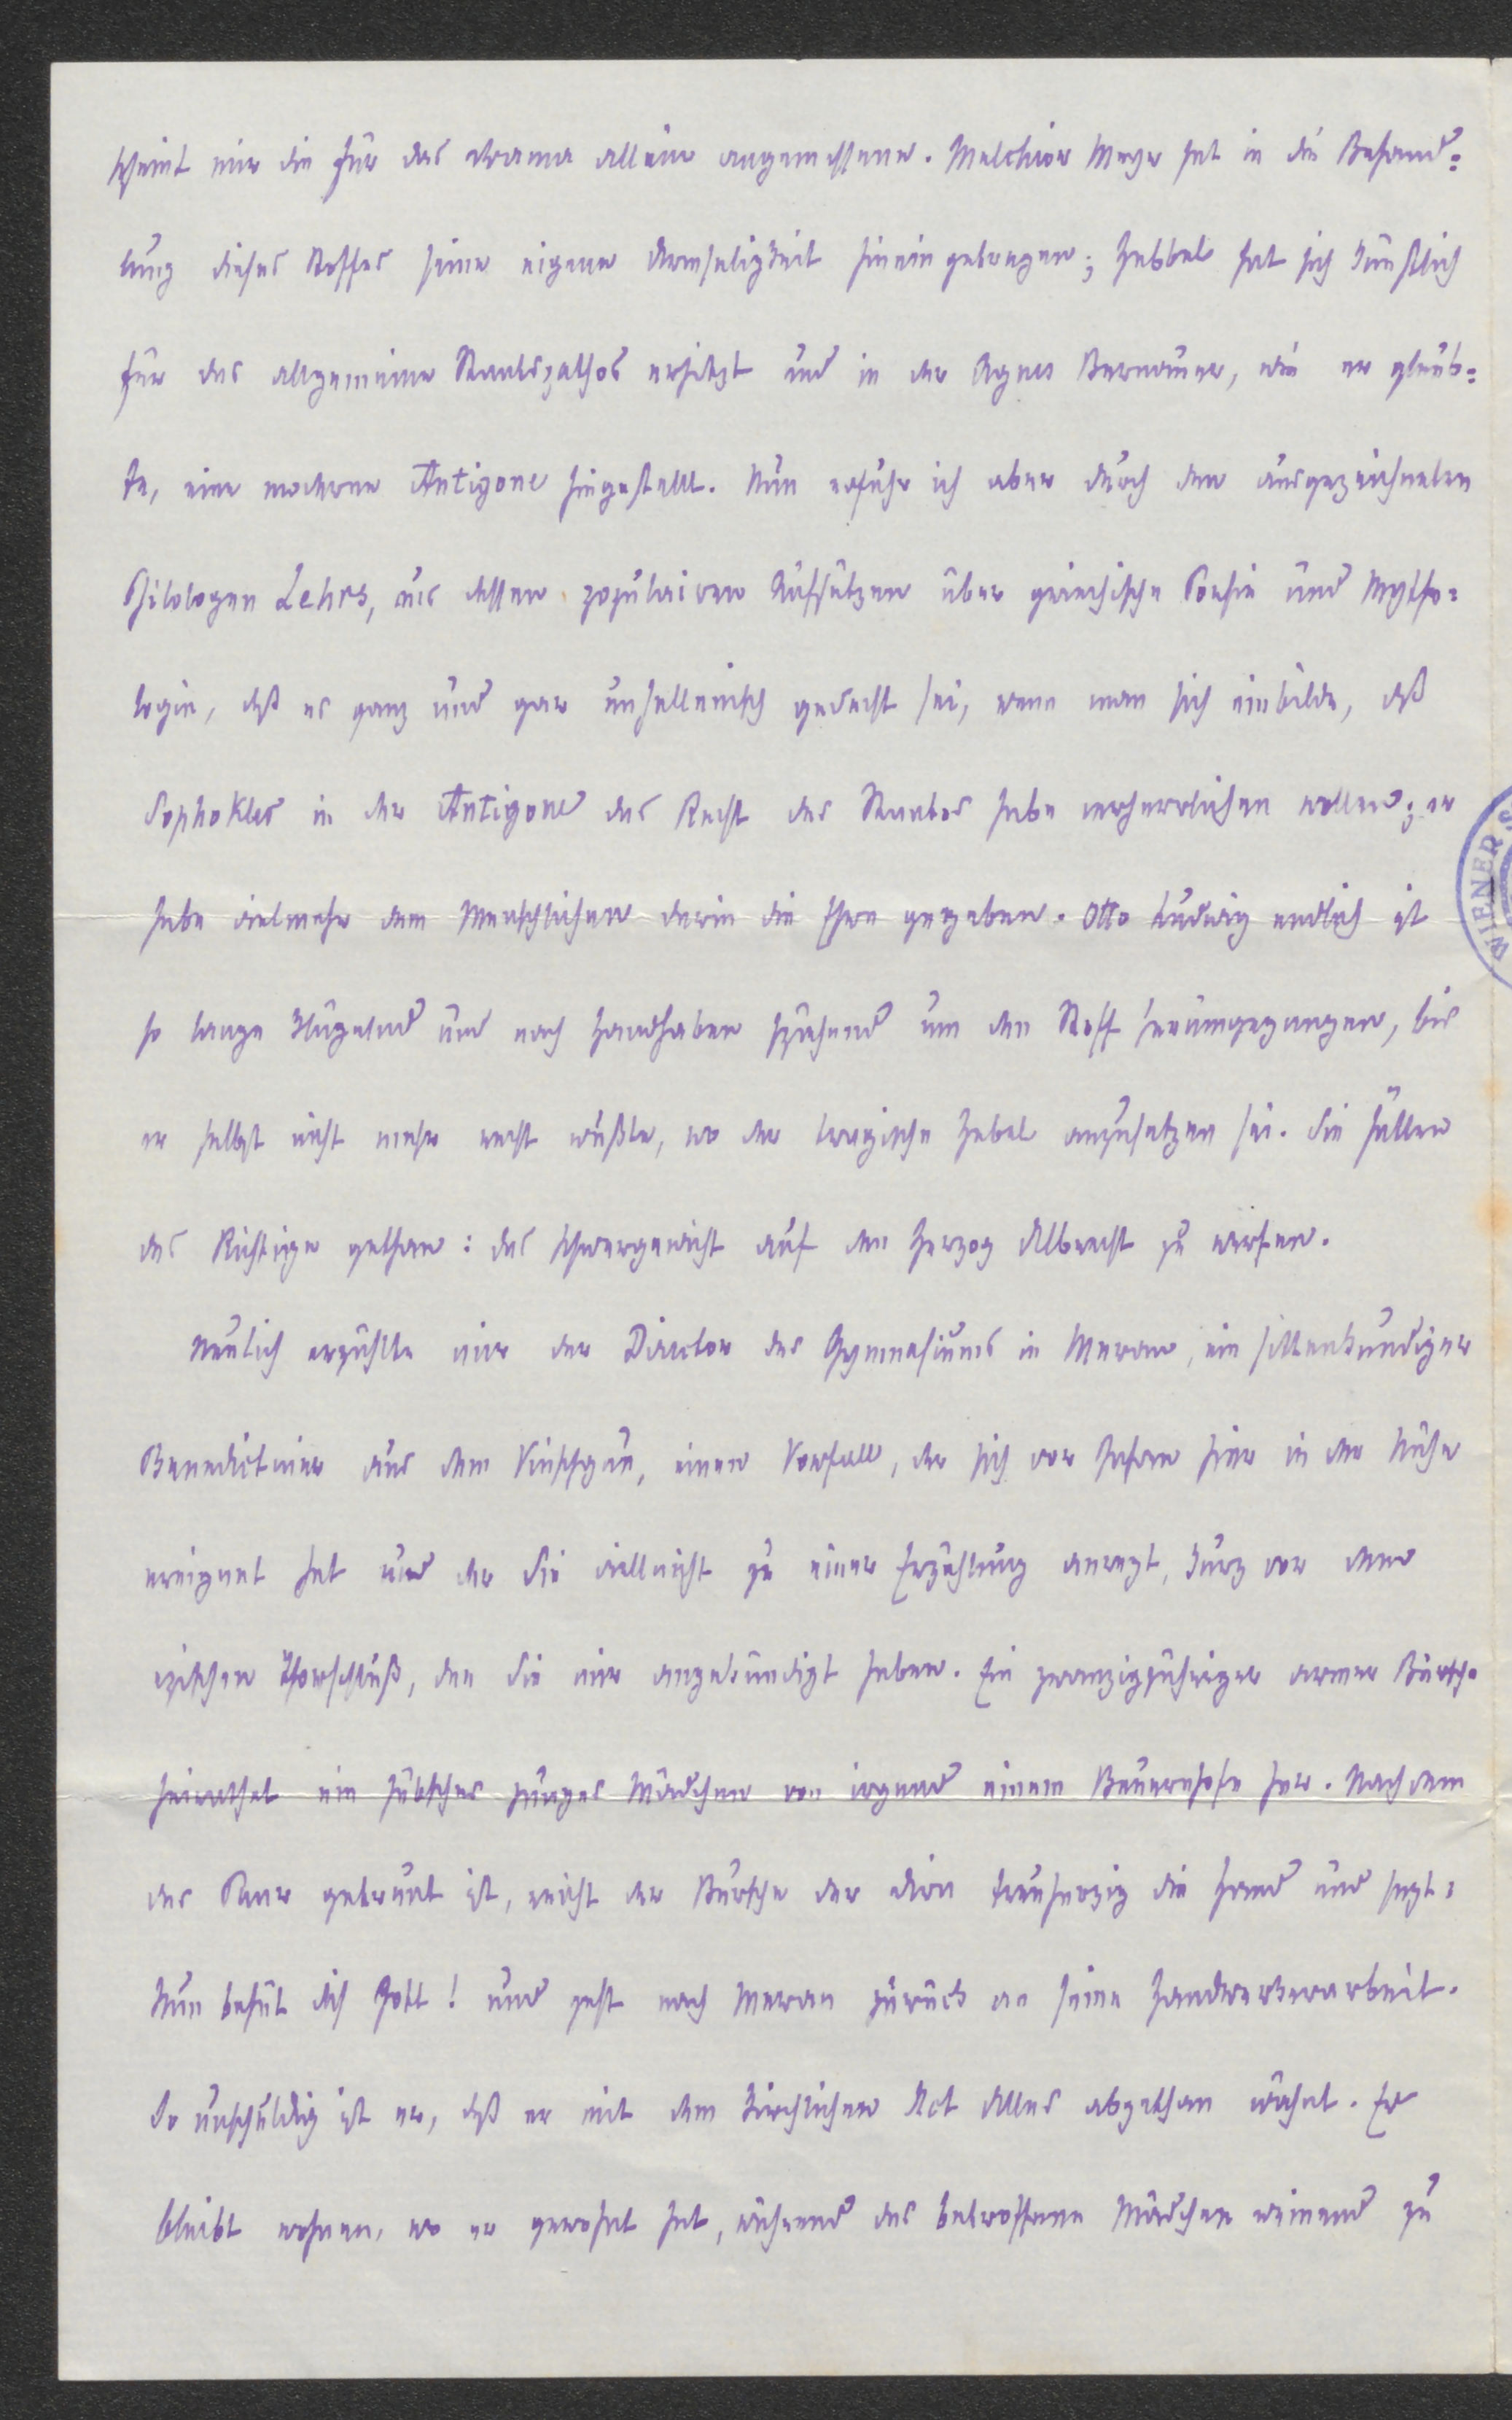 scheint mir die für das Drama allein angemessene. Melchior Meyr hat in die Behand=
lung dieses Stoffes seine eigene Armseligkeit hineingetragen; Hebbel hat sich künstlich
für das allgemeine Staatspathos erhitzt und in der Agnes Bernauer, wie er glaub=
te, eine moderne Antigone hingestellt. Nun erfuhr ich aber durch den ausgezeichneten
Philologen Lehrs, aus dessen populairen Aufsätzen über griechische Poesie und Mytho=
logie, daß es ganz und gar unhellenisch gedacht sei, wenn man sich einbilde, daß
Sophokles in der Antigone das Recht des Staates habe verherrlichen wollen; er
habe vielmehr dem Menschlichen darin die Ehre gegeben. Otto Ludwig endlich ist
so lange klügelnd und nach Handhaben spähend um den Stoff herumgegangen, bis
er selbst nicht mehr recht wußte, wo der tragische Hebel anzusetzen sei. Sie hätten
das Richtige gethan: das Schwergewicht auf den Herzog Albrecht zu werfen.
Neulich erzählte mir der Director des Gymnasiums in Meran, ein sittenkundiger
Benedictiner aus dem Vinschgau, einen Vorfall, der sich vor Jahren hier in der Nähe
ereignet hat und der Sie vielleicht zu einer Erzählung anregt, kurz vor dem
epischen Thorschluß, den Sie mir angekündigt haben. Ein zwanzigjähriger armer Bursche
heirathet ein hübsches junges Mädchen von irgend einem Bauernhofe her. Nachdem
das Paar getraut ist, reicht der Bursche der Dirn treuherzig die Hand und sagt:
Nun behüt dich Gott! und geht nach Meran zurück an seine Handwerkerarbeit.
So unschuldig ist er, daß er mit dem kirchlichen Act Alles abgethan wähnt. Er
bleibt wohnen, wo er gewohnt hat, während das betroffene Mädchen weinend zu
WIENER S